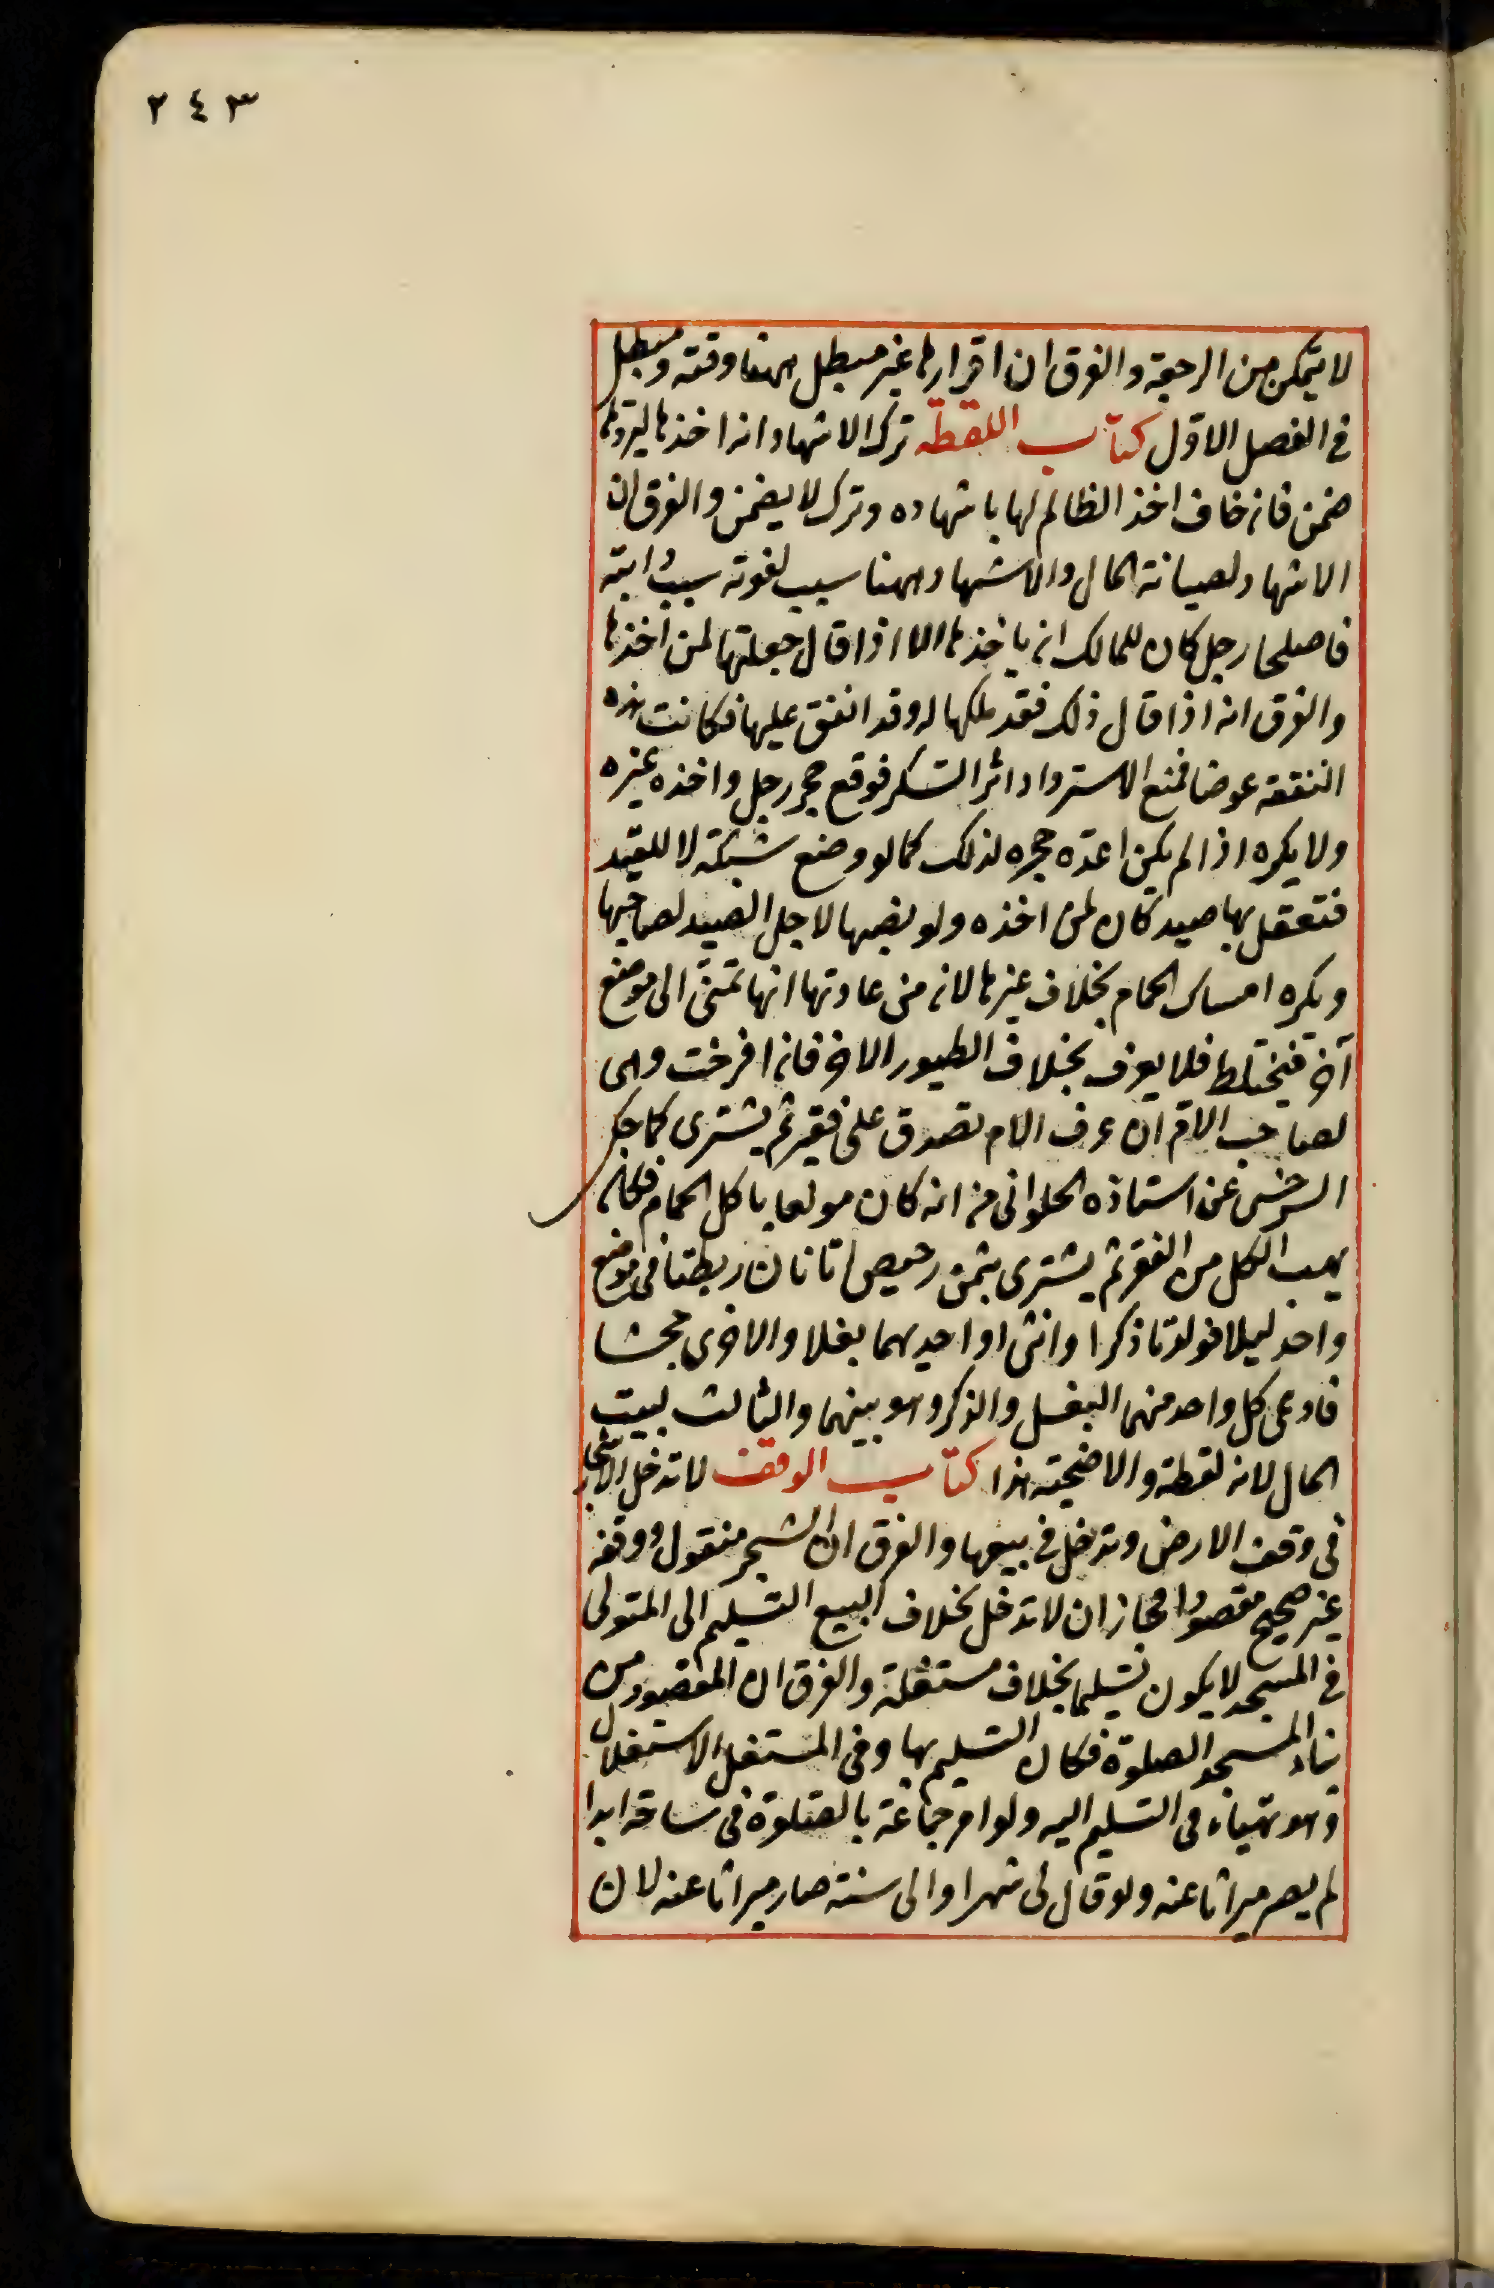 ٢٤٣
لا يتمكن من الرجعة والفرق ان اقرارها غير مبطل ههنا وقته ومبطل
فى الفصل الاول كتاب اللقطة ترك الاشهاد انه اخذها ليردها
ضمن فان خاف اخذ الظالم لها باشهاده وترك لا يضمن والفرق ان
الاشهاد لصيانة المال والاشهاد ههنا سبب لفوته سيب دابته
فاصلحها رجل كان للمالك ان ياخذها الا اذا قال جعلتها لمن اخذها
والفرق انه اذا قال ذلك فقد ملكها له وقد انفق عليها فكانت هذه
النفقة عوضا فمنع الاسترداد نثر السكر فوقع حجر رجل واخذه غيره
ولا يكره اذا لم يكن اعد حجره لذلك كما لو وضع شبكة لا للصيد
فتعقل بها صيد كان لمن اخذه ولو نصبها لاجل الصيد لصاحبها
ويكره امساك الحمام بخلاف غيرها لان من عادتها انها تمشى الى موضع
آخر فيختلط فلا يعرف بخلاف الطيور الاخر فان افرخت وهى
لصاحب الام ان عرف الام تصدق على فقير ثم يشترى كما حكى
السرخسى عن استاذه الحلوانى من انه كان مولعا باكل الحمام فكان
يهب الكل من الفقير ثم يشترى بثمن رخيص اتانان ربطتا فى موضع
واحد ليلا فولدتا ذكرا وانثى او احديهما بغلا والاخرى جحشا
فادعى كل واحد منهما البغل والذكر وهو بينهما والثالث لبيت
المال لانه لقطة والاضحية هذا كتاب الوقف لا تدخل الاشجار
فى وقف الارض وتدخل فى بيعها والفرق ان الشجر منقول ووقفه
غير صحيح مقصودا فجاز ان لا تدخل بخلاف البيع التسليم الى المتولى
فى المسجد لا يكون تسليما بخلاف مستغلة والفرق ان المقصود من
بناء المسجد الصلوة فكان التسليم بها وفى المستغل الاستغلال
وهو تهياء فى التسليم اليه ولو امر جماعة بالصلوة فى ساحة ابدا
لم يصر ميراثا عنه ولو قال لى شهرا والى سنة صار ميراثا عنه لان